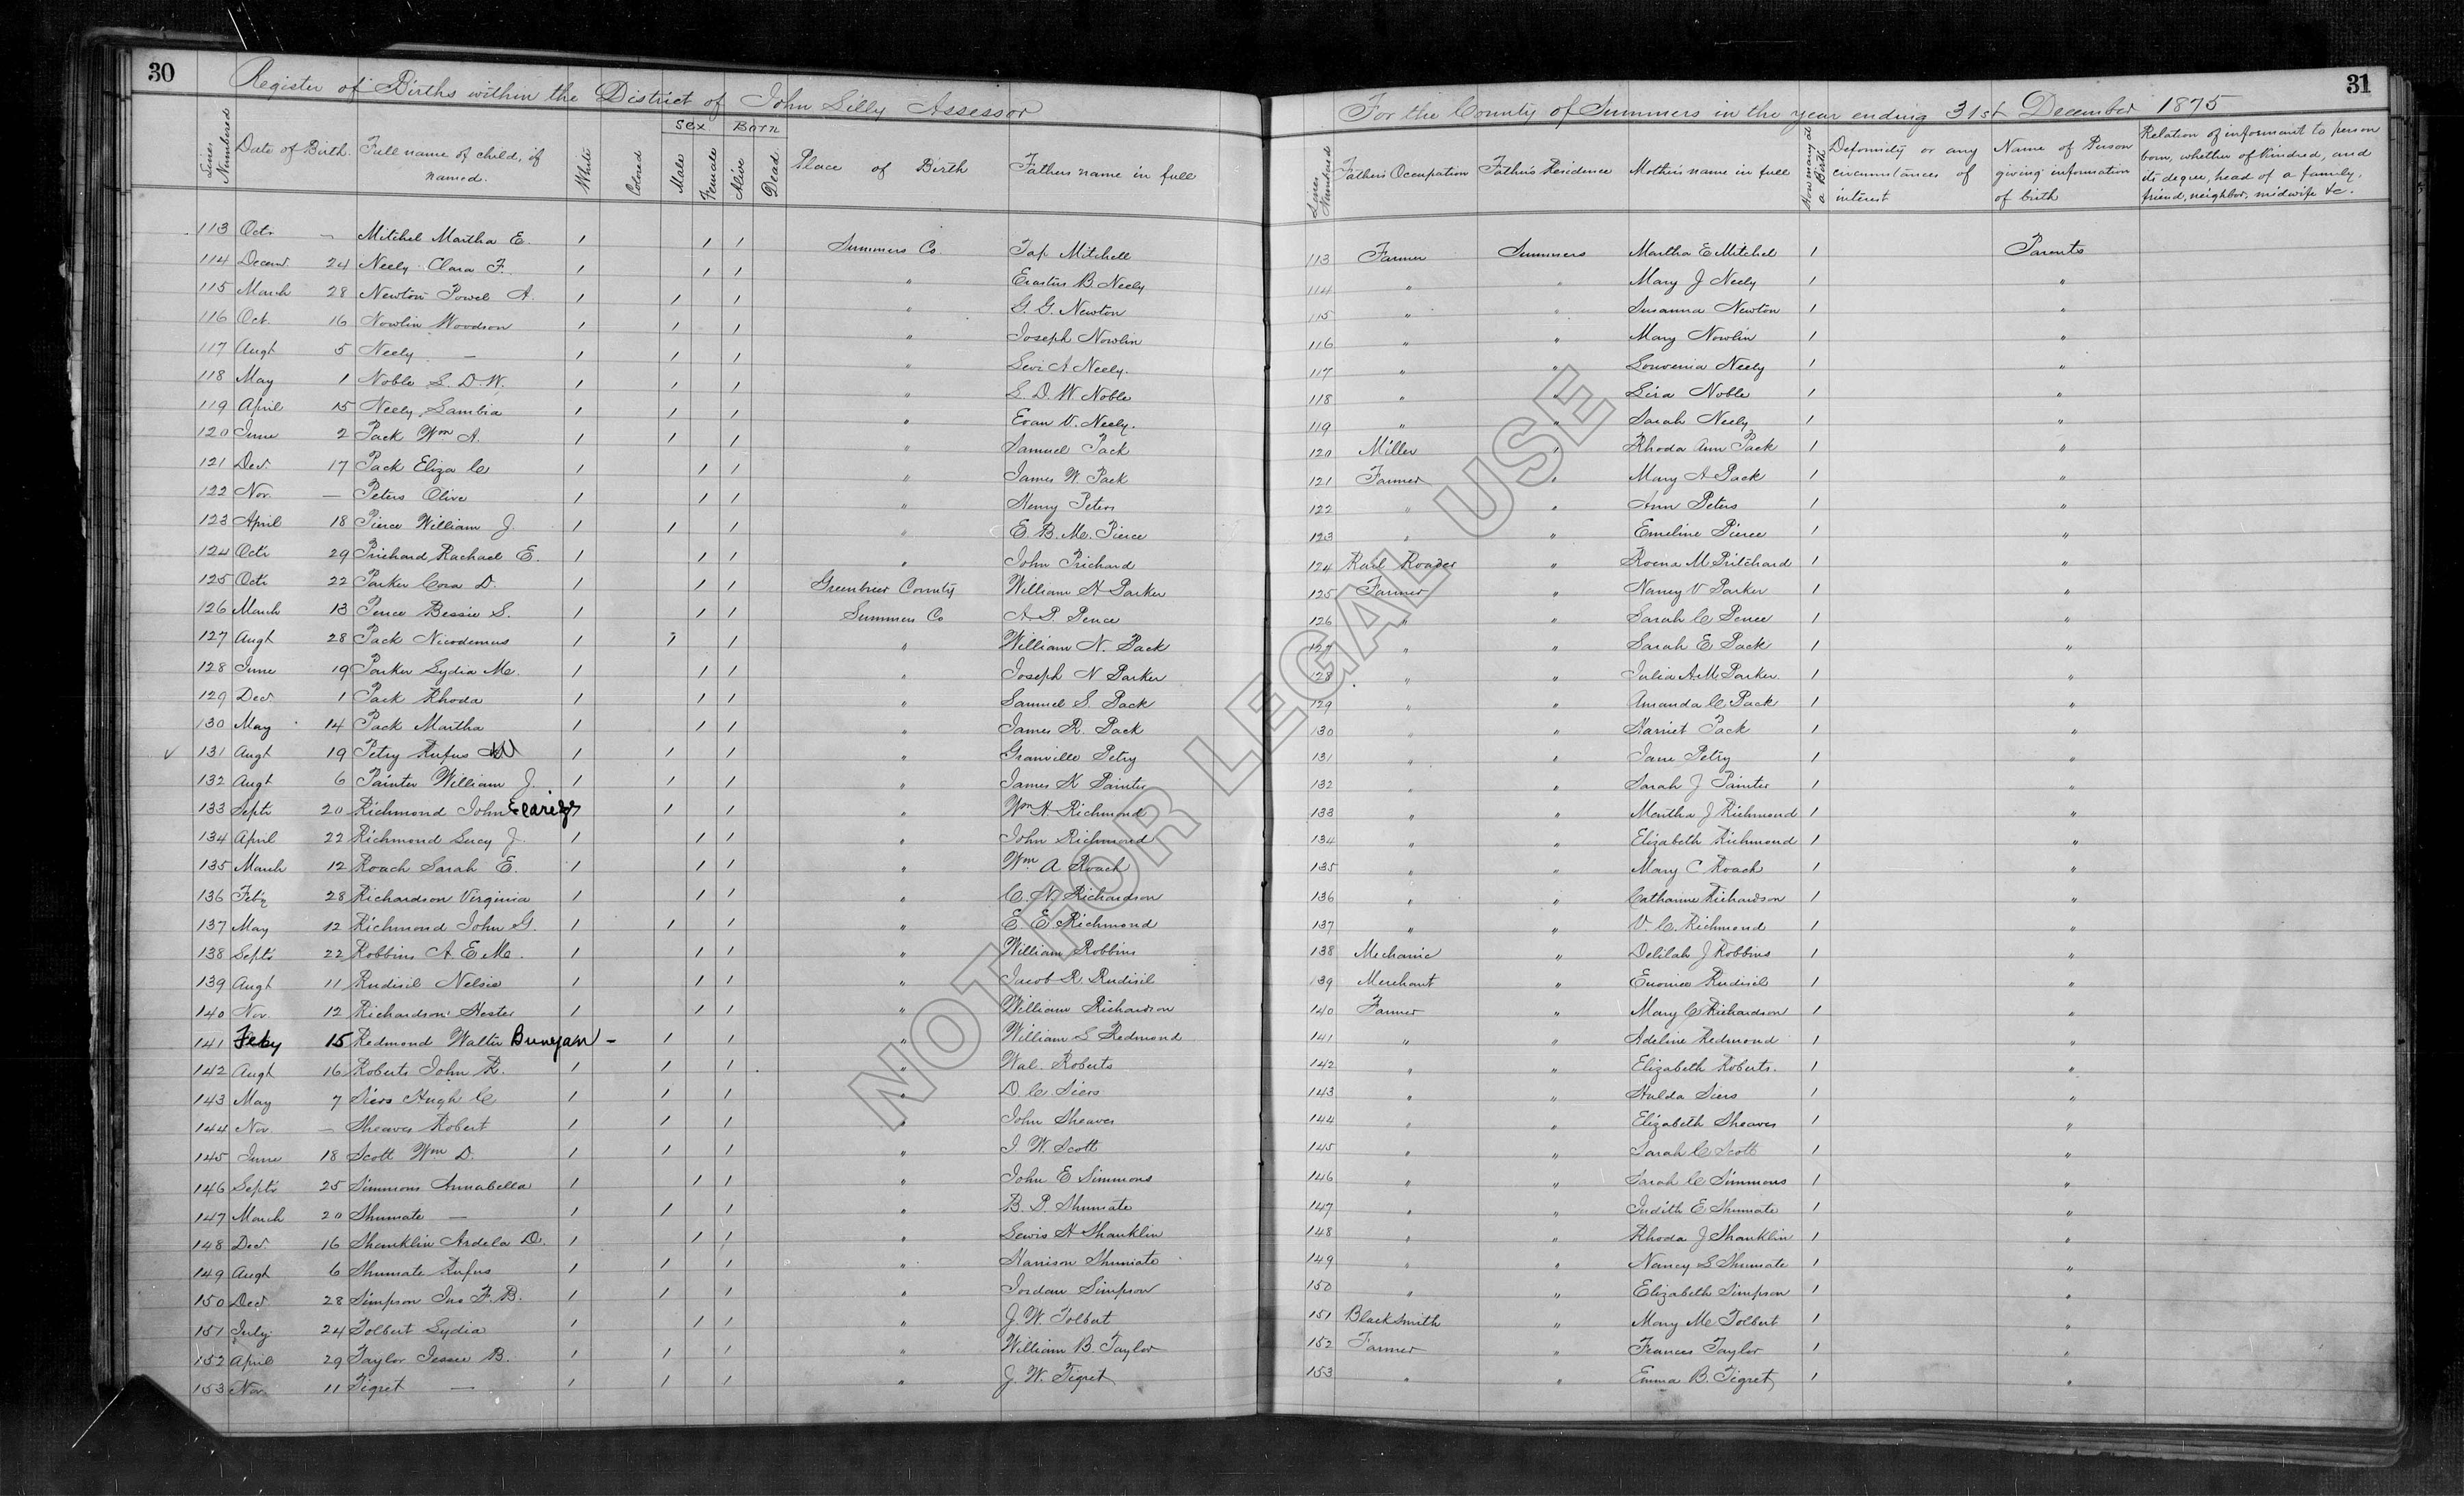 30
Register of Births within the District of John Lilly Assessor
Lines Numbered Date of Birth. Full name of child, if named. White Colored Sex Male Female Born Alive Dead Place of Birth Fathers name in full
113 Oct. — Mitchel Martha E. 1 1 1 Summers Co. Tap Mitchell
114 Decem. 24 Neely Clara F. 1 1 1 " Erastus B. Neely
115 March 28 Newton Powel A. 1 1 1 " G. G. Newton
116 Oct. 16 Nowlin Woodson 1 1 1 " Joseph Nowlin
117 Augt 5 Neely — 1 1 1 " Levi A Neely.
118 May 1 Noble L. D. W. 1 1 1 " L. D. W. Noble
119 April 15 Neely Lambia 1 1 1 " Evan V. Neely.
120 June 2 Pack Wm A. 1 1 1 " Samuel Pack
121 Dec. 17 Pack Eliza C 1 1 1 " James W. Pack
122 Nov. — Peters Olive 1 1 1 " Henry Peters
123 April 18 Pierce William J. 1 1 1 " E. B. Mc. Pierce
124 Oct. 29 Prichard Rachael E. 1 1 1 " John Prichard
125 Oct. 22 Parker Cora D. 1 1 1 Greenbrier County William H Parker
126 March 13 Pence Bessie S. 1 1 1 Summers Co A. P. Pence
127 Augt 28 Pack Nicodemus 1 1 1 " William N. Pack
128 June 19 Parker Lydia M. 1 1 1 " Joseph N Parker
129 Dec. 1 Pack Rhoda 1 1 1 " Samuel S. Pack
130 May 14 Pack Martha 1 1 1 " James R. Pack
131 Augt 19 Petry Rufus W 1 1 1 " Granville Petry
132 Augt 6 Painter William J. 1 1 1 " James K Painter
133 Sept. 20 Richmond John 1 1 " Wm H Richmond
134 April 22 Richmond Lucy J. 1 1 1 " John Richmond
135 March 12 Roach Sarah E. 1 1 1 " Wm A Roach
136 Feby 28 Richardson Virginia 1 1 1 " C. N. Richardson
137 May 12 Richmond John G. 1 1 1 " E. E Richmond
138 Sept. 22 Robbins A. E. M. 1 1 1 " William Robbins
139 Augt 11 Rudisil Nelsie 1 1 1 " Jacob R. Rudisil
140 Nov 12 Richardson Hester 1 1 1 " William Richardson
141 Feby 15 Redmond Walter Bunyan – 1 1 " William S Redmond
142 Augt 16 Roberts John R. 1 1 1 " Wal. Roberts
143 May 7 Siers Hugh C 1 1 1 " D. C. Siers
144 Nov. — Sheaves Robert 1 1 1 " John Sheaves
145 June 18 Scott Wm D. 1 1 1 " J. W. Scott
146 Sept. 25 Simmons Annabella 1 1 1 " John E Simmons
147 March 20 Shumate — 1 1 1 " B. P. Shumate
148 Dec. 16 Shanklin Ardela D. 1 1 1 " Lewis H Shanklin
149 Augt 6 Shumate Rufus 1 1 1 " Harrison Shumate
150 Dec. 28 Simpson Jno F. B. 1 1 1 " Jordan Simpson
151 July 24 Tolbert Lydia 1 1 1 " J. W. Tolbert
152 April 29 Taylor Jessee B. 1 1 1 " William B. Taylor
153 Nov. 11 Tigret — 1 1 1 " J. W. Tigret
31
For the County of Summers in the year ending 31st December 1875
Lines Numbered Fathers Occupation Fathers Residence Mothers name in full How many at a Birth Deformity or any circumstances of interest Name of Person giving information of birth Relation of informant to person born, whether of kindred, and its degree, head of a family, friend, neighbor, midwife &c.
113 Farmer Summers Martha E Mitchel 1 Parents
114 " " Mary J Neely 1 "
115 " " Susanna Newton 1 "
116 " " Mary Nowlin 1 "
117 " " Louvenia Neely 1 "
118 " " Lira Noble 1 "
119 " " Sarah Neely 1 "
120 Miller " Rhoda Ann Pack 1 "
121 Farmer " Mary A Pack 1 "
122 " " Ann Peters 1 "
123 " " Emeline Pierce 1 "
124 Rail Roader " Roena M Pritchard 1 "
125 Farmer " Nancy V Parker 1 "
126 " " Sarah C Pence 1 "
127 " " Sarah E Pack 1 "
128 " " Julia A M Parker. 1 "
129 " " Amanda C Pack 1 "
130 " " Harriet Pack 1 "
131 " " Jane Petry 1 "
132 " " Sarah J Painter 1 "
133 " " Martha J Richmond 1 "
134 " " Elizabeth Richmond 1 "
135 " " Mary C Roach 1 "
136 " " Catharine Richardson 1 "
137 " " V. C. Richmond 1 "
138 Mechanic " Delilah J Robbins 1 "
139 Merchant " Eunice Rudisil 1 "
140 Farmer " Mary C Richardson 1 "
141 " " Adeline Redmond 1 "
142 " " Elizabeth Roberts. 1 "
143 " " Hulda Siers 1 "
144 " " Elizabeth Sheaves 1 "
145 " " Sarah C Scott 1 "
146 " " Sarah C Simmons 1 "
147 " " Judith E Shumate 1 "
148 " " Rhoda J Shanklin 1 "
149 " " Nancy S Shumate 1 "
150 " " Elizabeth Simpson 1 "
151 Blacksmith " Mary M. Tolbert 1 "
152 Farmer " Frances Taylor 1 "
153 " " Emma B. Tigret 1 "
NOT FOR LEGAL USE